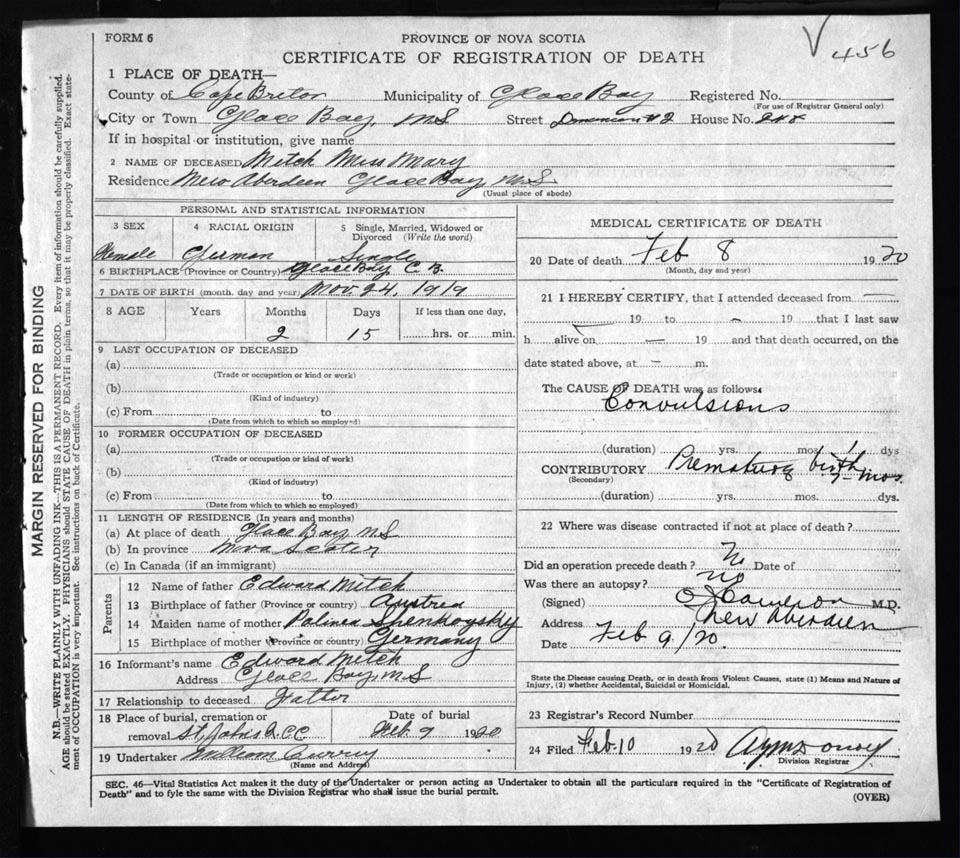 FORM 6
PROVINCE OF NOVA SCOTIA
456
CERTIFICATE OF REGISTRATION OF DEATH
1 PLACE OF DEATH—
County of Cape Breton Municipality of Glace Bay Registered No.
(For use of Registrar General only)
City or Town Glace Bay, N.S Street Dominion # 2 House No. 248
If in hospital or institution, give name
2 NAME OF DECEASED Mitch Miss Mary
Residence New Aberdeen Glace Bay, N.S
(Usual place of abode)
PERSONAL AND STATISTICAL INFORMATION
3 SEX 4 RACIAL ORIGIN 5 Single, Married, Widowed or Divorced (Write the word)
Female German Single
6 BIRTHPLACE (Province or Country) Glace Bay C.B.
7 DATE OF BIRTH (month, day and year) Nov. 24, 1919
8 AGE Years Months Days If less than one day,
2 15 hrs. or min.
9 LAST OCCUPATION OF DECEASED
(a)
(Trade or occupation or kind or work)
(b)
(Kind of industry)
(c) From to
(Date from which to which so employed)
10 FORMER OCCUPATION OF DECEASED
(a)
(Trade or occupation or kind of work)
(b)
(Kind of industry)
(c) From to
(Date from which to which so employed)
11 LENGTH OF RESIDENCE (In years and months)
(a) At place of death Glace Bay, N S
(b) In province Nova Scotia
(c) In Canada (if an immigrant)
Parents
12 Name of father Edward Mitch
13 Birthplace of father (Province or country) Austrea
14 Maiden name of mother Polinea Shenkoysky
15 Birthplace of mother (Province or country) Germany
16 Informant's name Edward Mitch
Address Glace Bay, N S
17 Relationship to deceased Fatter
18 Place of burial, cremation or removal St Johns
Date of burial
Feb. 9 1920
19 Undertaker William Curry
(Name and Address)
MEDICAL CERTIFICATE OF DEATH
20 Date of death Feb 8 1920
(Month, day and year)
21 I HEREBY CERTIFY, that I attended deceased from —
19 to — 19 that I last saw
h alive on — 19 and that death occurred, on the
date stated above, at — m.
The CAUSE OF DEATH was as follows:
Convulsions
(duration) yrs. mos. 1 dys
CONTRIBUTORY Prematury birth
(Secondary) 7 mos.
(duration) yrs. mos. dys.
22 Where was disease contracted if not at place of death?
Did an operation precede death? No Date of
Was there an autopsy? no
(Signed) Cameron M.D.
Address New Aberdeen
Date Feb 9/20.
State the Disease causing Death, or in death from Violent Causes, state (1) Means and Nature of
Injury, (2) whether Accidental, Suicidal or Homicidal.
23 Registrar's Record Number
24 Filed Feb. 10 1920
Division Registrar
SEC. 46—Vital Statistics Act makes it the duty of the Undertaker or person acting as Undertaker to obtain all the particulars required in the "Certificate of Registration of
Death" and to fyle the same with the Division Registrar who shall issue the burial permit.
(OVER)
MARGIN RESERVED FOR BINDING
N.B.—WRITE PLAINLY WITH UNFADING INK—THIS IS A PERMANENT RECORD. Every item of information should be carefully supplied.
AGE should be stated EXACTLY. PHYSICIANS should STATE CAUSE OF DEATH in plain terms, so that it may be properly classified. Exact state-
ment of OCCUPATION is very important. See instructions on back of Certificate.